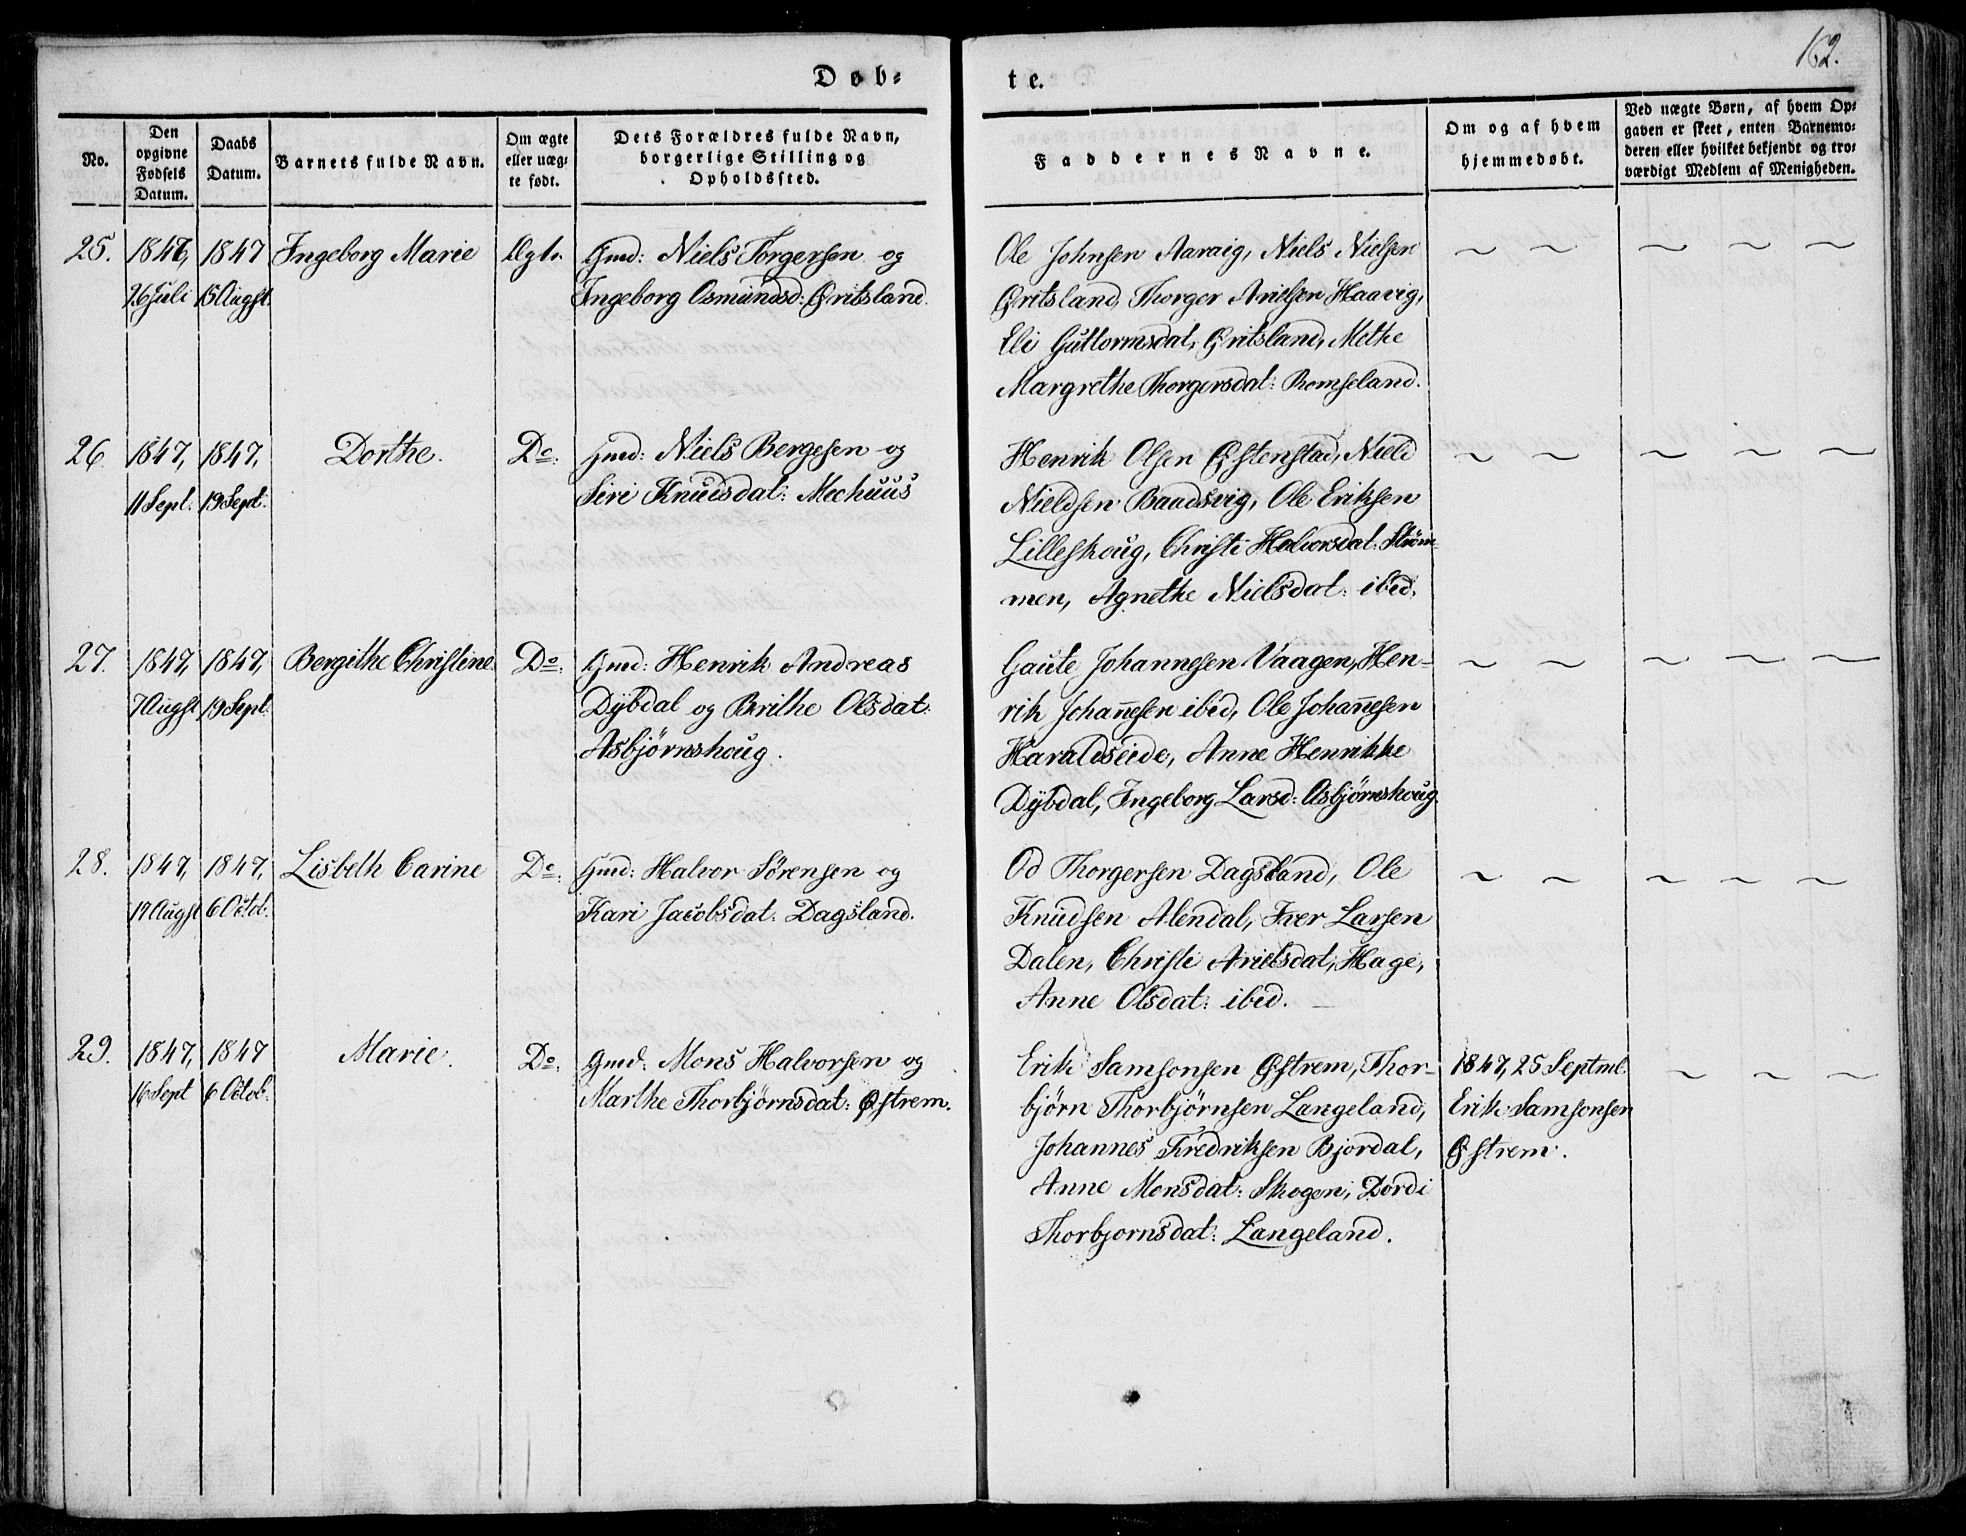 162.
Døb-
te.
No.
Den opgivne Fødsels Datum.
Daabs Datum.
Barnets fulde Navn.
Om ægte eller uæg-
te født.
Dets Forældres fulde Navn,
borgerlige Stilling og
Opholdssted.
Faddernes Navne.
Om og af hvem
hjemmedøbt.
Ved uægte Børn, af hvem Op-
gaven er skeet, enten Barnemo-
deren eller hvilket bekjendt og tro-
værdigt Medlem af Menigheden.
25. 1847, 1847 Ingeborg Marie Ægte. Gmd: Niels Torgersen og
26 Juli 15 Augst. Ingeborg Osmundsd: Øritsland.
Ole Johnsen Aaraig, Niels Nielsen ~ ~ ~ ~ ~
Øritsland, Thorger Arielsen Haavig,
Eli Guttormsdat, Øritsland, Methe
Margrethe Thorgersdat: Romseland.
26. 1847, 1847, Dorthe. Do: Gmd: Niels Bergesen og
11 Sept. 19 Sept. Siri Knudsdat: Mechuus
Henrik Olsen Østenstad, Nield ~ ~ ~ ~ ~
Nieldsen Baadsvig, Ole Eriksen
Lilleskoug, Christi Halvorsdat. Strøm-
men, Agnethe Nielsdat: ibid.
27. 1847, 1847, Bergithe Christine Do: Gmd: Henrik Andreas
7 Augst 19 Sept: Dÿbdal og Brithe Olsdat:
Asbjørnshoug.
Gaute Johannesen Vaagen, Hen- ~ ~ ~ ~ ~
rik Johan̄esen ibid, Ole Johan̄esen
Haraldseide, Anne Henrikke
Dÿbdal, Ingeborg Larsd: Asbjørnshoug.
28. 1847, 1847, Lisbeth Carine Do: Gmd: Halvor Sørensen og
19 Augst 6 Octob. Kari Jacobsdat: Dagsland.
Od Thorgersen Dagsland, Ole ~ ~ ~ ~ ~
Knudsen Alendal, Iver Larsen
Dalen, Christi Arielsdat, Hage,
Anne Olsdat: ibid. —
29. 1847, 1847 Marie. Do: Gmd: Mons Halvorsen og
16 Sept 6 Octob: Marthe Thorbjørnsdat: Østrem.
Erik Samsonsen Østrem, Thor- 1847, 25 Septmb. ~ ~ ~
bjørn Thorbjørnsen Langeland, Erik Samsonsen
Johannes Fredriksen Bjordal, Østrem.
Anne Monsdat: Skogen, Dordi
Thorbjornsdat: Langeland.